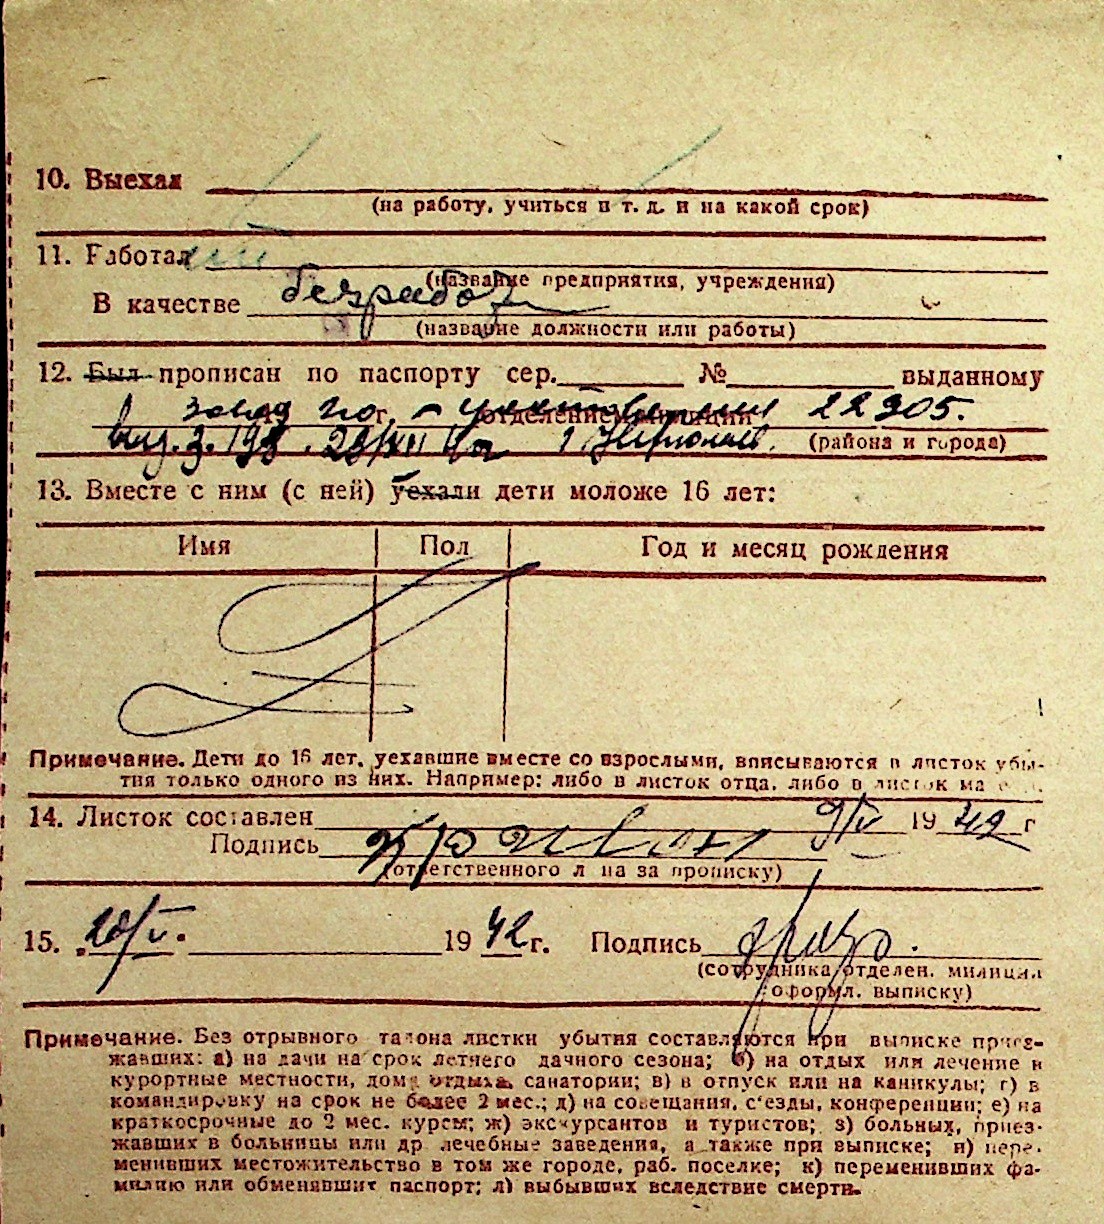 10. Выехал
(на работу, учиться и т. д. и на какой срок)
11. Работал
(название предприятия, учреждения)
В качестве безработ
(название должности или работы)
12. Был прописан по паспорту сер. № выданному
г. отделением милиции 22905.
28/XII г. (района и города)
13. Вместе с ним (с ней) уехали дети моложе 16 лет:
Имя Пол Год и месяц рождения
Примечание. Дети до 16 лет, уехавшие вместе со взрослыми, вписываются в листок убы-
тия только одного из них. Например: либо в листок отца, либо в листок ма
14. Листок составлен 9/IV 1942 г
Подпись
(ответственного л на за прописку)
15. 1942 г. Подпись
(сотрудника отделен. милиции
оформл. выписку)
Примечание. Без отрывного талона листки убытия составляются при выписке приез-
жавших: а) на дачи на срок летнего дачного сезона; б) на отдых или лечение в
курортные местности, дома отдыха, санатории; в) в отпуск или на каникулы; г) в
командировку на срок не более 2 мес.; д) на совещания, с'езды, конференции; е) на
краткосрочные до 2 мес. курсы; ж) экскурсантов и туристов; з) больных, приез-
жавших в больницы или др лечебные заведения, а также при выписке; и) пере-
менивших местожительство в том же городе, раб. поселке; к) переменивших фа-
милию или обменявших паспорт; л) выбывших вследствие смерти.